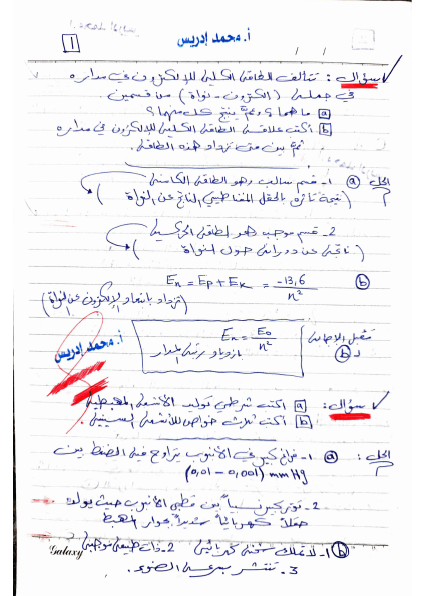 أ. محمد إدريس
1
سؤال: تتألف الطاقة الكلية للإلكترون في مداره
في جملة (إلكترون - نواة) من قسمين.
a ما هما؟ وممّ ينتج كل منهما؟
b أكتب علاقة الطاقة الكلية للإلكترون في مداره
ثم بين متى تزداد هذه الطاقة.
الحل: a 1- قسم سالب وهو الطاقة الكامنة
(نتيجة تأثره بالحقل المغناطيسي الناتج عن النواة)
2- قسم موجب هو الطاقة الحركية
(ناتجة عن دورانه حول النواة)
b En = Ep + Ek = -13,6 / n²
(تزداد بابتعاد الإلكترون عن النواة)
تقبل الإجابة لـ b
En = E0 / n²
بازدياد رتبة المدار
أ. محمد إدريس
سؤال: a اكتب شرطي توليد الأشعة المهبطية
b اكتب ثلاث خواص للأشعة السينية.
الحل: a 1- فراغ كبير في الأنبوب يتراوح فيه الضغط بين
(0,01 - 0,001) mm Hg
2- توتر كبير نسبياً بين قطبي الأنبوب حيث يولد
حقلاً كهربائياً شديداً بجوار المهبط
b 1- لا تملك شحنة كهربائية 2- ذات طبيعة موجية
3- تنتشر بسرعة الضوء.
Galaxy